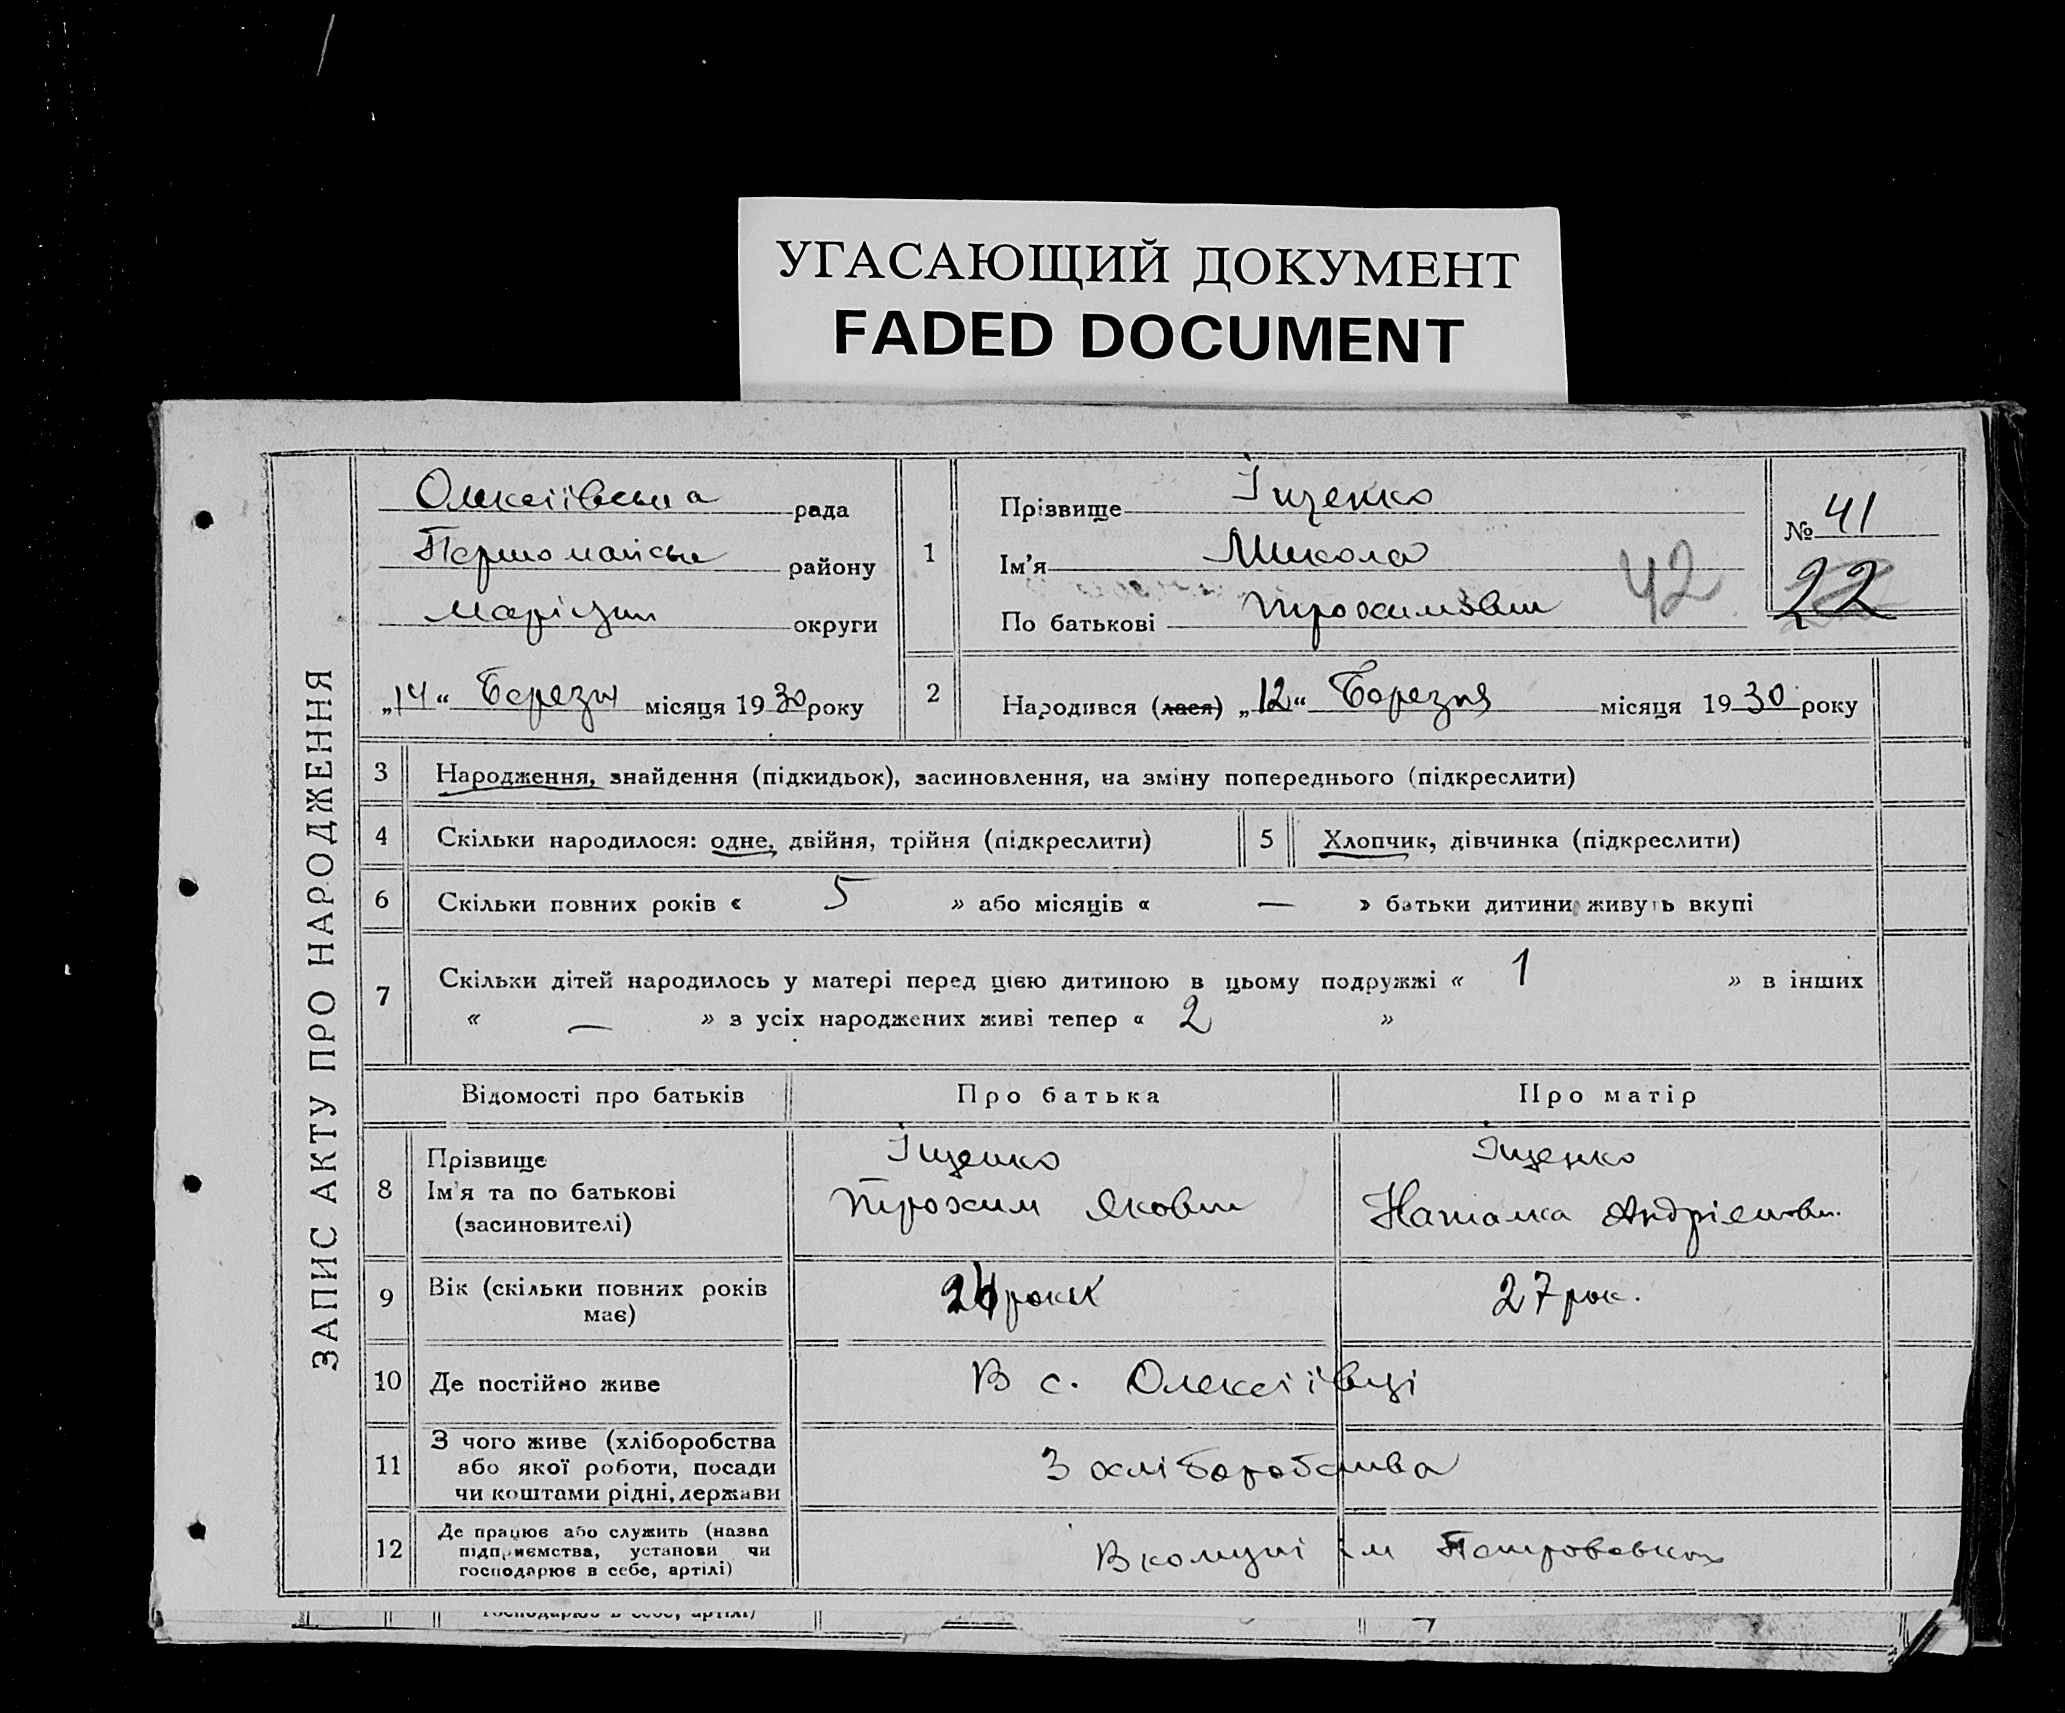 УГАСАЮЩИЙ ДОКУМЕНТ
FADED DOCUMENT
ЗАПИС АКТУ ПРО НАРОДЖЕННЯ
Олексіївська рада
Першомайськ району
Маріуп округи
„14“ Березня місяця 1930 року
1
Прізвище Іщенко
Ім'я Микола
По батькові Трохимович
№ 41
42
22
2
Народився (лася) „12“ Березня місяця 1930 року
3 Народження, знайдення (підкидьок), засиновлення, на зміну попереднього (підкреслити)
4 Скільки народилося: одне, двійня, трійня (підкреслити)
5 Хлопчик, дівчинка (підкреслити)
6 Скільки повних років « 5 » або місяців « — » батьки дитини живуть вкупі
7 Скільки дітей народилось у матері перед цією дитиною в цьому подружжі « 1 » в інших
« — » з усіх народжених живі тепер « 2 »
Відомості про батьків Про батька Про матір
8
Прізвище
Ім'я та по батькові
(засиновителі)
Іщенко
Трохим Якович
Іщенко
Наталка Андріївн.
9
Вік (скільки повних років
має)
роки
27 рок.
10 Де постійно живе В с. Олексіївці
11
З чого живе (хліборобства
або якої роботи, посади
чи коштами рідні, держави
З хліборобства
12
Де працює або служить (назва
підприємства, установи чи
господарює в себе, артілі)
В комуні ім Петровського
господарює в себе, артілі)